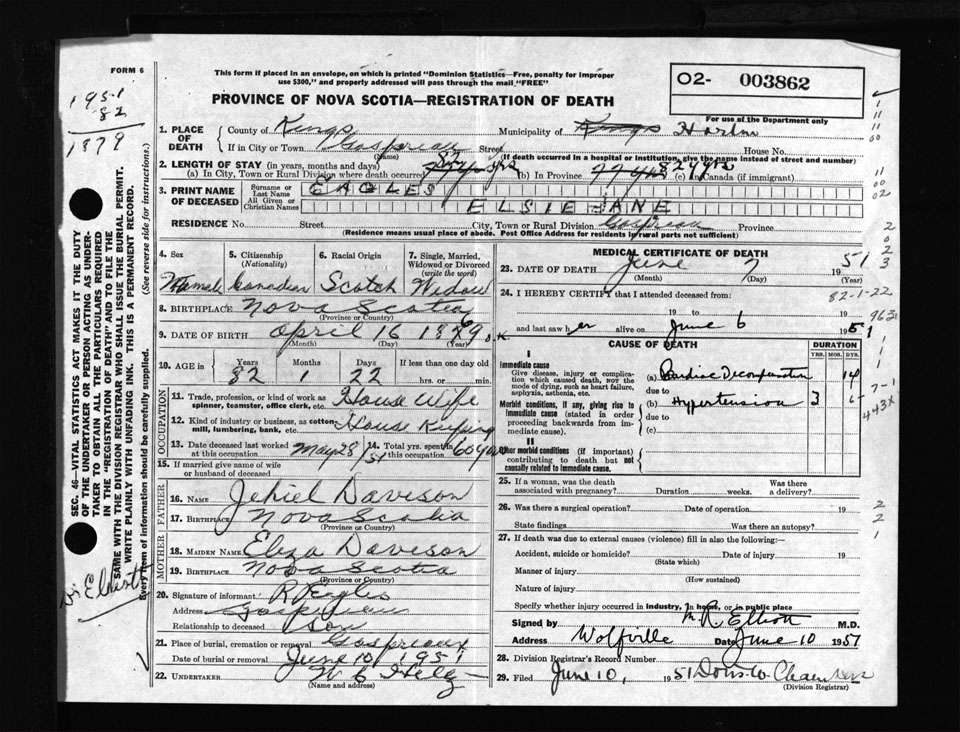 FORM 6
This form if placed in an envelope, on which is printed "Dominion Statistics—Free, penalty for improper
use $300," and properly addressed will pass through the mail "FREE"
O2- 003862
For use of the Department only
PROVINCE OF NOVA SCOTIA—REGISTRATION OF DEATH
1951
82
1879
1. PLACE OF DEATH
County of Kings Municipality of Kings Horton
If in City or Town Gaspreau Street House No.
(Name) (If death occurred in a hospital or institution, give the name instead of street and number)
2. LENGTH OF STAY (in years, months and days)
(a) In City, Town or Rural Division where death occurred (b) In Province (c) In Canada (if immigrant)
3. PRINT NAME OF DECEASED
Surname or Last Name EAGLES
All Given or Christian Names ELSIE JANE
RESIDENCE No. Street City, Town or Rural Division Province
(Residence means usual place of abode. Post Office Address for residents in rural parts not sufficient)
4. Sex
5. Citizenship (Nationality)
6. Racial Origin
7. Single, Married, Widowed or Divorced (write the word)
Female Canadian Scotch Widow
8. BIRTHPLACE Nova Scotia
(Province or Country)
9. DATE OF BIRTH April 16
(Month) (Day) (Year)
10. AGE in Years Months Days If less than one day old
82 1 22 hrs. or min.
OCCUPATION
11. Trade, profession, or kind of work as spinner, teamster, office clerk, etc. House Wife
12. Kind of industry or business, as cotton-mill, lumbering, bank, etc. House Keeping
13. Date deceased last worked at this occupation May 28/51
14. Total yrs. spent in this occupation 60 yrs
15. If married give name of wife or husband of deceased
FATHER
16. NAME Jehiel Davison
17. BIRTHPLACE Nova Scotia
(Province or Country)
MOTHER
18. MAIDEN NAME Eliza Davison
19. BIRTHPLACE Nova Scotia
(Province or Country)
20. Signature of informant R Eagles
Address
Relationship to deceased Son
21. Place of burial, cremation or removal Gaspreaux
Date of burial or removal June 10 1951
22. UNDERTAKER
(Name and address)
MEDICAL CERTIFICATE OF DEATH
23. DATE OF DEATH June 7 1951
(Month) (Day) (Year)
24. I HEREBY CERTIFY that I attended deceased from:
82-1-22
19 to 19
and last saw h er alive on June 6 1951
CAUSE OF DEATH
DURATION
YRS. MOS. DYS.
I
Immediate cause
Give disease, injury or complication which caused death, NOT the mode of dying, such as heart failure, asphyxia, asthenia, etc.
(a) Cardiac Decompensation 14
due to
Morbid conditions, if any, giving rise to immediate cause (stated in order proceeding backwards from immediate cause).
(b) Hypertension 3
due to
(c)
II
Other morbid conditions (if important) contributing to death but not causally related to immediate cause.
7-1
443X
25. If a woman, was the death associated with pregnancy? Duration weeks. Was there a delivery?
26. Was there a surgical operation? Date of operation 19
State findings Was there an autopsy?
27. If death was due to external causes (violence) fill in also the following:
Accident, suicide or homicide? Date of injury 19
(State which)
Manner of injury
(How sustained)
Nature of injury
Specify whether injury occurred in industry, in home, or in public place
Signed by M R Elliott M.D.
Address Wolfville Date June 10 1951
28. Division Registrar's Record Number
29. Filed June 10, 1951 Doris W. Chambers
(Division Registrar)
SEC. 46—VITAL STATISTICS ACT MAKES IT THE DUTY
OF THE UNDERTAKER OR PERSON ACTING AS UNDER-
TAKER TO OBTAIN ALL THE PARTICULARS REQUIRED
IN THE "REGISTRATION OF DEATH" AND TO FILE THE
SAME WITH THE DIVISION REGISTRAR WHO SHALL ISSUE THE BURIAL PERMIT.
WRITE PLAINLY WITH UNFADING INK. THIS IS A PERMANENT RECORD.
Every item of information should be carefully supplied. (See reverse side for instructions.)